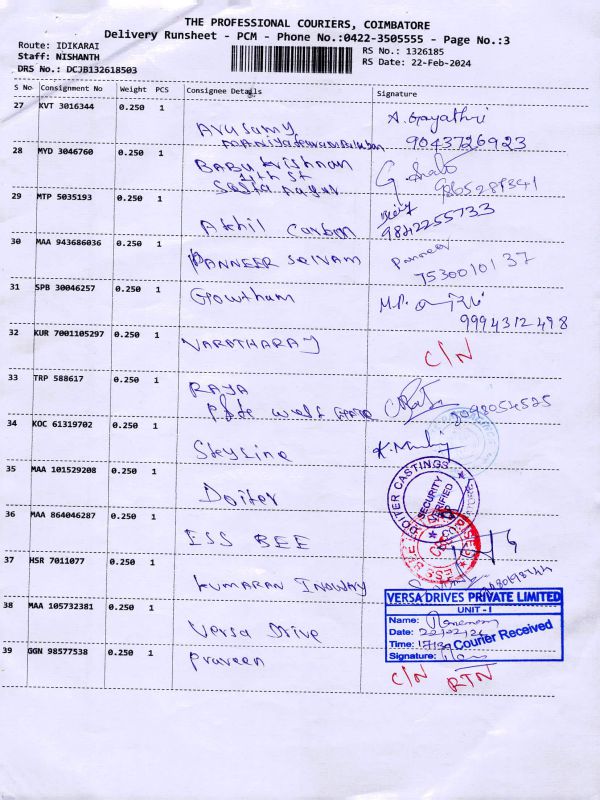 THE PROFESSIONAL COURIERS, COIMBATORE
Delivery Runsheet - PCM - Phone No.:0422-3505555 - Page No.:3
Route: IDIKARAI
RS No.: 1326185
Staff: NISHANTH
RS Date: 22-Feb-2024
DRS No.: DCJB132618503
S No Consignment No Weight PCS Consignee Details Signature
27 KVT 3016344 0.250 1
Arusamy A. Gayathri
9043726923
28 MYD 3046760 0.250 1
Babu krishnan
11th St
9865289341
29 MTP 5035193 0.250 1
Akhil Carbon 9842255733
30 MAA 943686036 0.250 1
PANNEER SELVAM Panneer
7530010137
31 SPB 30046257 0.250 1
Gowtham M.P.
9994312498
32 KUR 7001105297 0.250 1
VARATHARAJ C/N
33 TRP 588617 0.250 1
RAYA
2098054525
34 KOC 61319702 0.250 1
Skyline
35 MAA 101529208 0.250 1
Doiter
DOITER CASTINGS
SECURITY VERIFIED
36 MAA 864046287 0.250 1
ESS BEE
ESS BEE
37 HSR 7011077 0.250 1
KUMARAN INOWAY
38 MAA 105732381 0.250 1
Versa Drive
VERSA DRIVES PRIVATE LIMITED
UNIT - I
Name:
Date: 22/02/24
Time:
Signature:
Courier Received
39 GGN 98577538 0.250 1
Praveen
C/N RTN